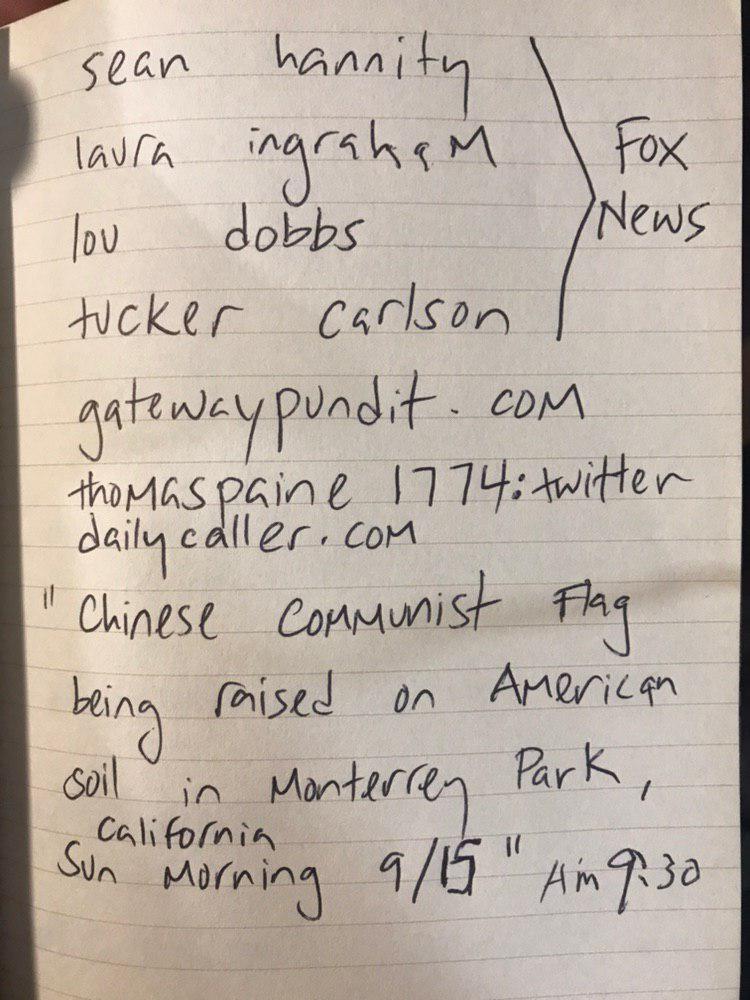 sean hannity
laura ingraham
Fox
lou dobbs
News
tucker carlson
gatewaypundit.com
thomaspaine 1774:twitter
dailycaller.com
"Chinese Communist Flag
being raised on American
soil in Monterrey Park,
California
Sun Morning 9/15" Am 9:30